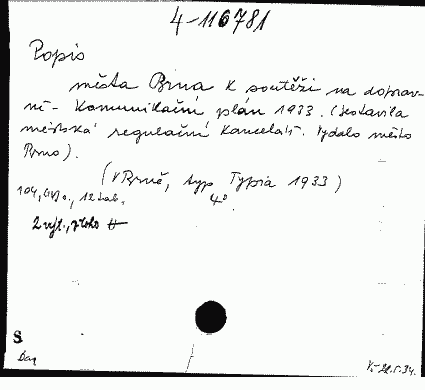 4-116781
Popis
města Brna k soutěži na doprav-
ně-komunikační plán 1933. (Sestavila
městská regulační kancelář. Vydalo město
Brno).
(V Brně, typ. Typia 1933)
104, 12 tab. 4°
2 výt.
S